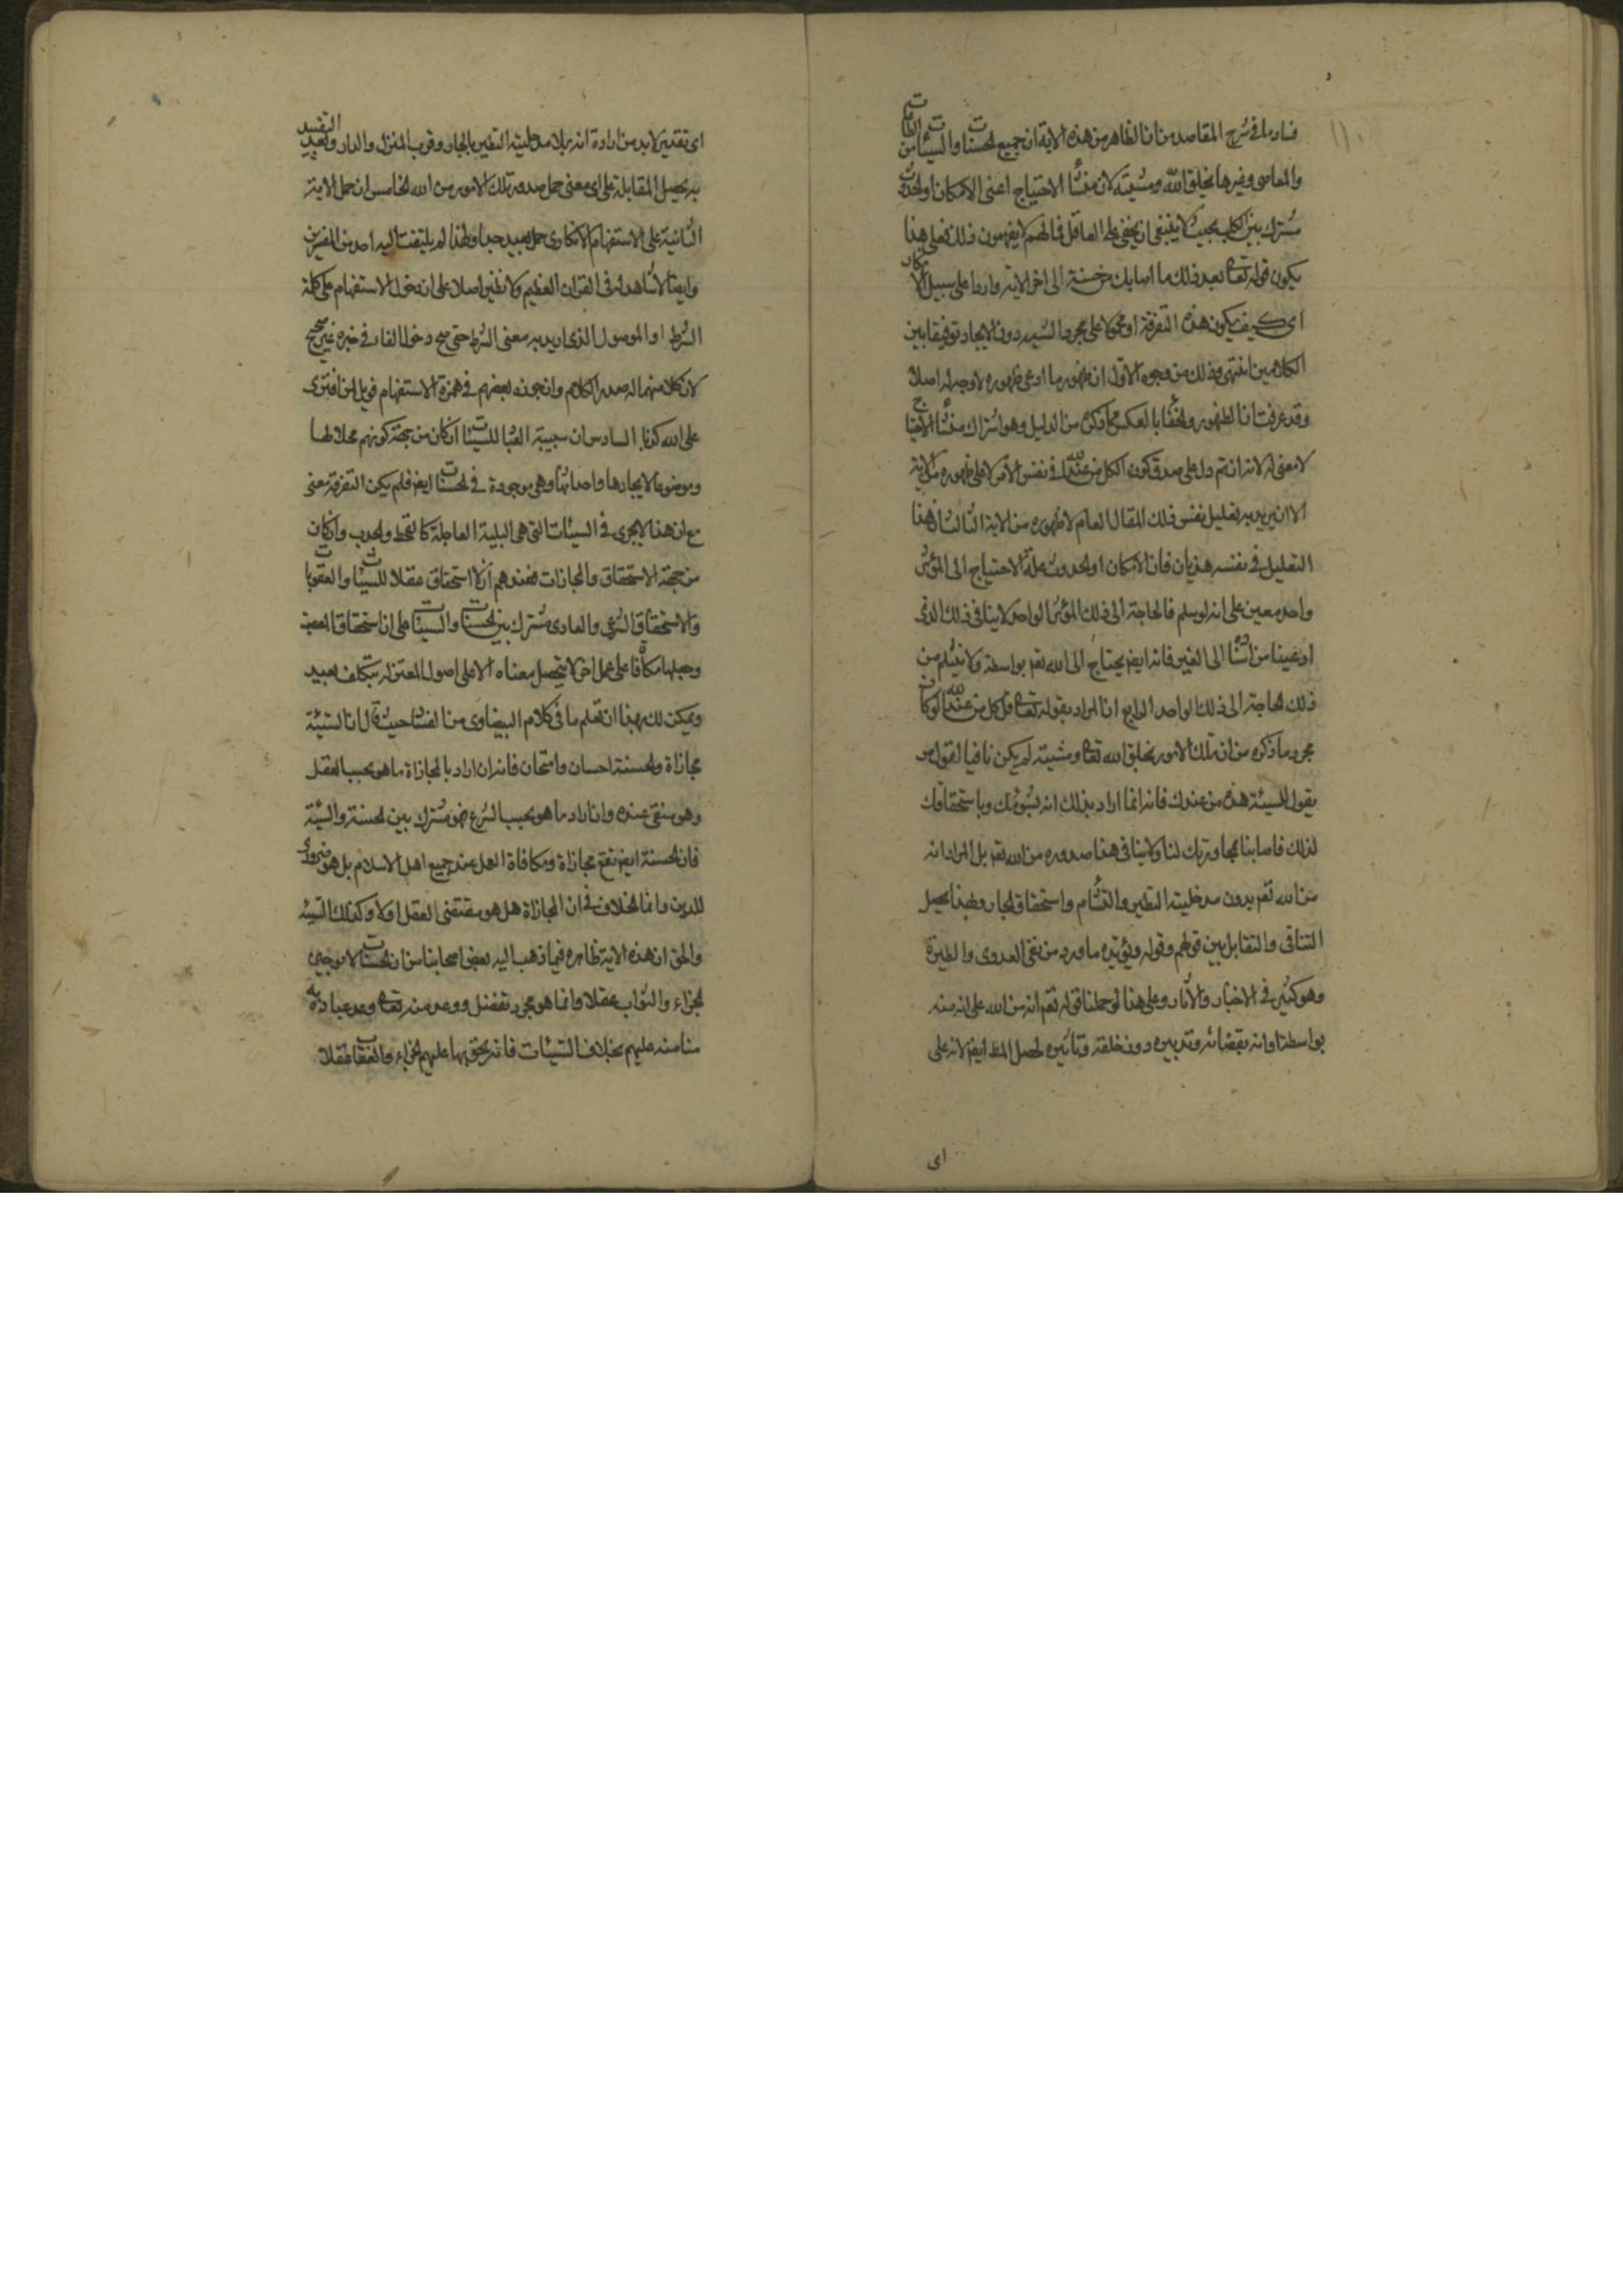 فساد ما في شرح المقاصد من ان الظاهر من هذه الاية ان جميع الحسنات والسيئات من الطاعات
والمعاصي وغيرها بخلق الله ومشيته لان منشأ الاحتياج اعني الامكان او الحدوث
مشترك بين الكل بحيث لا ينبغي ان يخفى على العاقل فما لهم لا يفهمون ذلك فعلى هذا
يكون قوله تعالى بعد ذلك ما اصابك من حسنة الى اخر الاية واردا على سبيل الانكار
اي كيف يكون هذه التفرقة او محمولا على مجرد السببية دون الايجاد توفيقا بين
الكلامين انتهى وذلك من وجوه الاول ان ظهور ما ادعى ظهوره لا وجه له اصلا
وقد عرفت ان الظهور والخفاء بالعكس وما ذكره من الدليل وهو اشتراك منشأ الاحتياج
لا معنى له لانه ان تم دل على صدق كون الكل من عند الله في نفس الامر لا على ظهوره من الاية
الا ان يريد به تعليل نفس ذلك المقال العام لا ظهوره من الاية الثالث ان هذا
التعليل في نفسه هذيان فان الامكان او الحدوث علة الاحتياج الى المؤثر
واحد معين على انه لو سلم فالحاجة الى ذلك المؤثر الواحد لا ينافي ذلك الذي
ادعينا من استناده الى الغير فانه ايض يحتاج الى الله تعم بواسطة ولا يعلم من
ذلك الحاجة الى ذلك الواحد الرابع ان المراد بقوله تعالى قل كل من عند الله لو كان
مجرد ما ذكره من ان تلك الامور بخلق الله تعالى ومشيته لم يكن نافيا لقول من
يقول للسيئة هذه من عندك فانه انما اراد بذلك انه بشومك وباستحقاقك
لذلك فاصابنا مجاورتك لنا ولا ينافي هذا صدوره من الله تعم بل المراد انه
من الله تعم بدون مدخلية التطير والتشأم واستحقاق الجار وبهذا يحصل
التنافي والتقابل بين قولهم وقوله ويؤيده ما ورد من نفي العدوى والطيرة
وهو كثير في الاخبار والاثار وعلى هذا لو حملنا قوله تعم انه من الله على انه منه
بواسطة او انه بقضائه وتدبيره دون خلقه وتاثيره لحصل المط ايض لانه على
اي
اي تقدير لا بد من ارادة انه بلا مدخلية التطير بالجار وقرب المنزل والدار وبعد التقييد
به يحصل المقابلة على اي معنى حمل صدور تلك الامور من الله الخامس ان حمل الاية
الثانية على الاستفهام الانكاري حمل بعيد جدا ولهذا لم يلتفت اليه احد من المفسرين
وايضا لا شاهد له في القران العظيم ولا نظير اصلا على ان دخول الاستفهام على كلمة
الشرط او الموصول الذي اريد به معنى الشرط حتى صح دخول الفاء في خبره غير صحيح
لان كلا منهما له صدر الكلام وان جوزه بعضهم في همزة الاستفهام فويل لمن افترى
على الله كذبا السادس ان سببية العباد للسيئات ان كان من جهة كونهم محلا لها
وموضوعا لايجادها واحداثها وهي موجودة في الحسنات ايض فلم يكن التفرقة معنى
مع ان هذا لا يجري في السيئات التي هي البلية العاجلة كالقحط والجدب وان كان
من جهة الاستحقاق والمجازات فعندهم ان لا استحقاق عقلا للسيئات والعقوبات
والاستحقاق الشرعي والعادي مشترك بين الحسنات والسيئات على ان استحقاق العقوبة
وجعلها مكافا على عمل اخر لا يتحصل معناه الا على اصول المعتزلة بتكلف بعيد
ويمكن لك بهذا ان تعلم ما في كلام البيضاوي من الفساد حيث قال ان السيئة
مجازاة والحسنة احسان وامتحان فانه ان اراد بالمجازاة ما هو بحسب العقل
وهو منتفي عنده وان اراد ما هو بحسب الشرع فهو مشترك بين الحسنة والسيئة
فان الحسنة ايض تقع مجازاة ومكافاة العمل عند جميع اهل الاسلام بل هو ضروري
للدين وانما الخلاف في ان المجازاة هل هو مقتضى العقل او لا وكذلك السيئة
والحق ان هذه الاية ظاهره فيما ذهب اليه بعض اصحابنا من ان الحسنات لا موجب
لجزاء والثواب عقلا وانما هو مجرد تفضل ووعد منه تعالى وعد عباده به
منا منه عليهم بخلاف السيئات فانه يحق بها عليهم الجزاء والعقاب عقلا